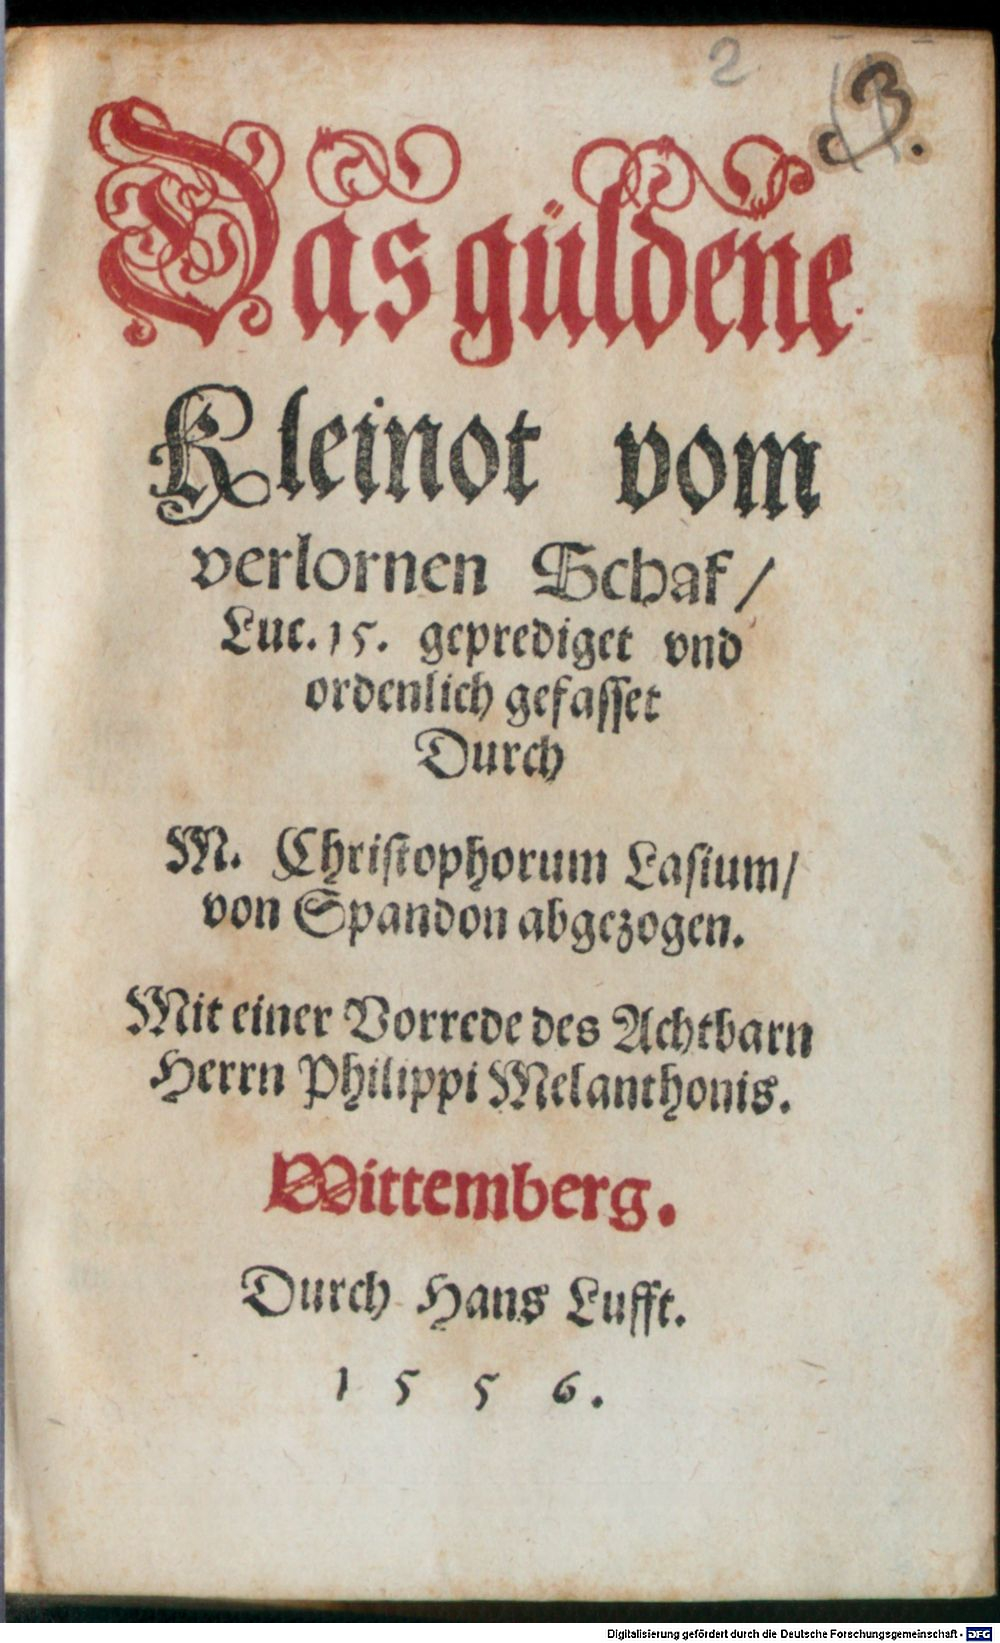 2
3.
Das güldene
Kleinot vom
verlornen Schaf/
Luc. 15. geprediget vnd
ordenlich gefasset
Durch
M. Christophorum Lasium/
von Spandon abgezogen.
Mit einer Vorrede des Achtbarn
Herrn Philippi Melanthonis.
Wittemberg.
Durch Hans Lufft.
1 5 5 6.
Digitalisierung gefördert durch die Deutsche Forschungsgemeinschaft - DFG